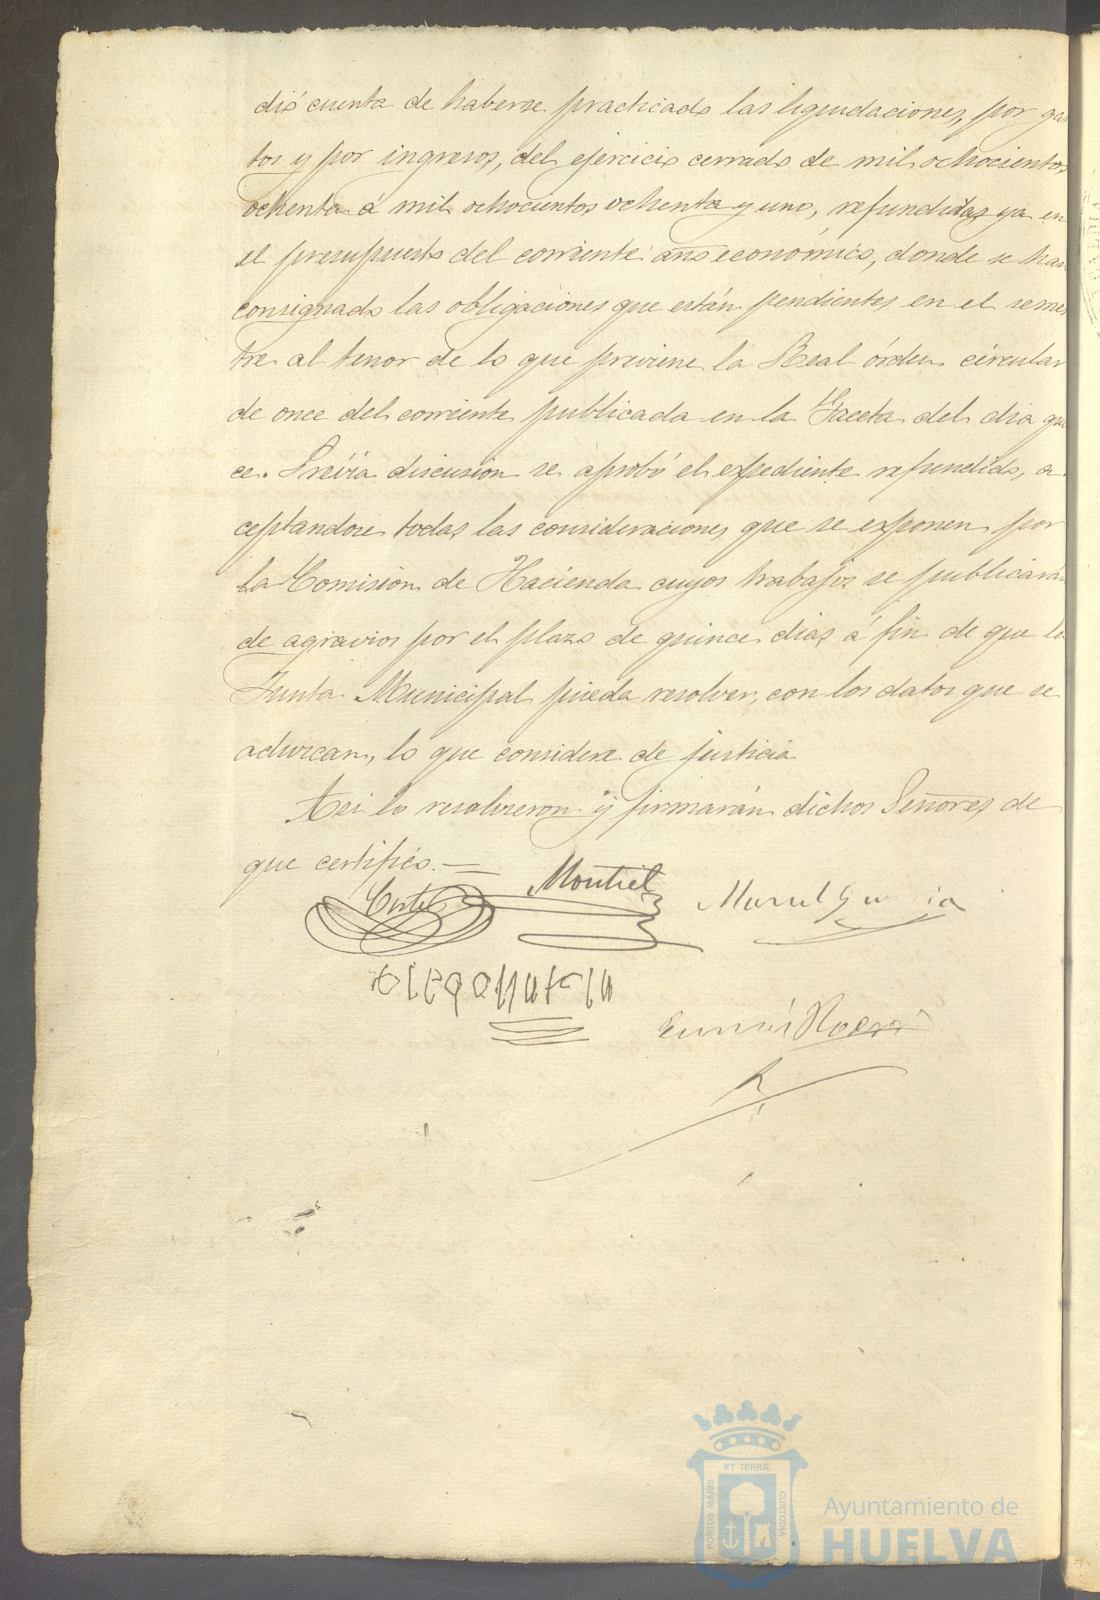 dió cuenta de haberse practicado las liquidaciones, por gas
tos y por ingresos, del ejercicio cerrado de mil ochocientos
ochenta á mil ochocientos ochenta y uno, refundidas ya en
el presupuesto del corriente año económico, donde se han
consignado las obligaciones que están pendientes en el semes
tre al tenor de lo que previene la Real órden circular
de once del corriente publicada en la Gaceta del dia quin
ce. Prévia discusion se aprobó el expediente refundido, a
ceptandose todas las consideraciones que se exponen por
la Comision de Hacienda cuyos trabajos se publicarán
de agravios por el plazo de quince dias á fin de que la
Junta Municipal pueda resolver, con los datos que se
aduzcan, lo que considere de justicia
Asi lo resolvieron y firmarán dichos Señores de
que certifico. =
Montiel
ET TERRÆ
PORTUS MARIS
CUSTODIA
Ayuntamiento de
HUELVA